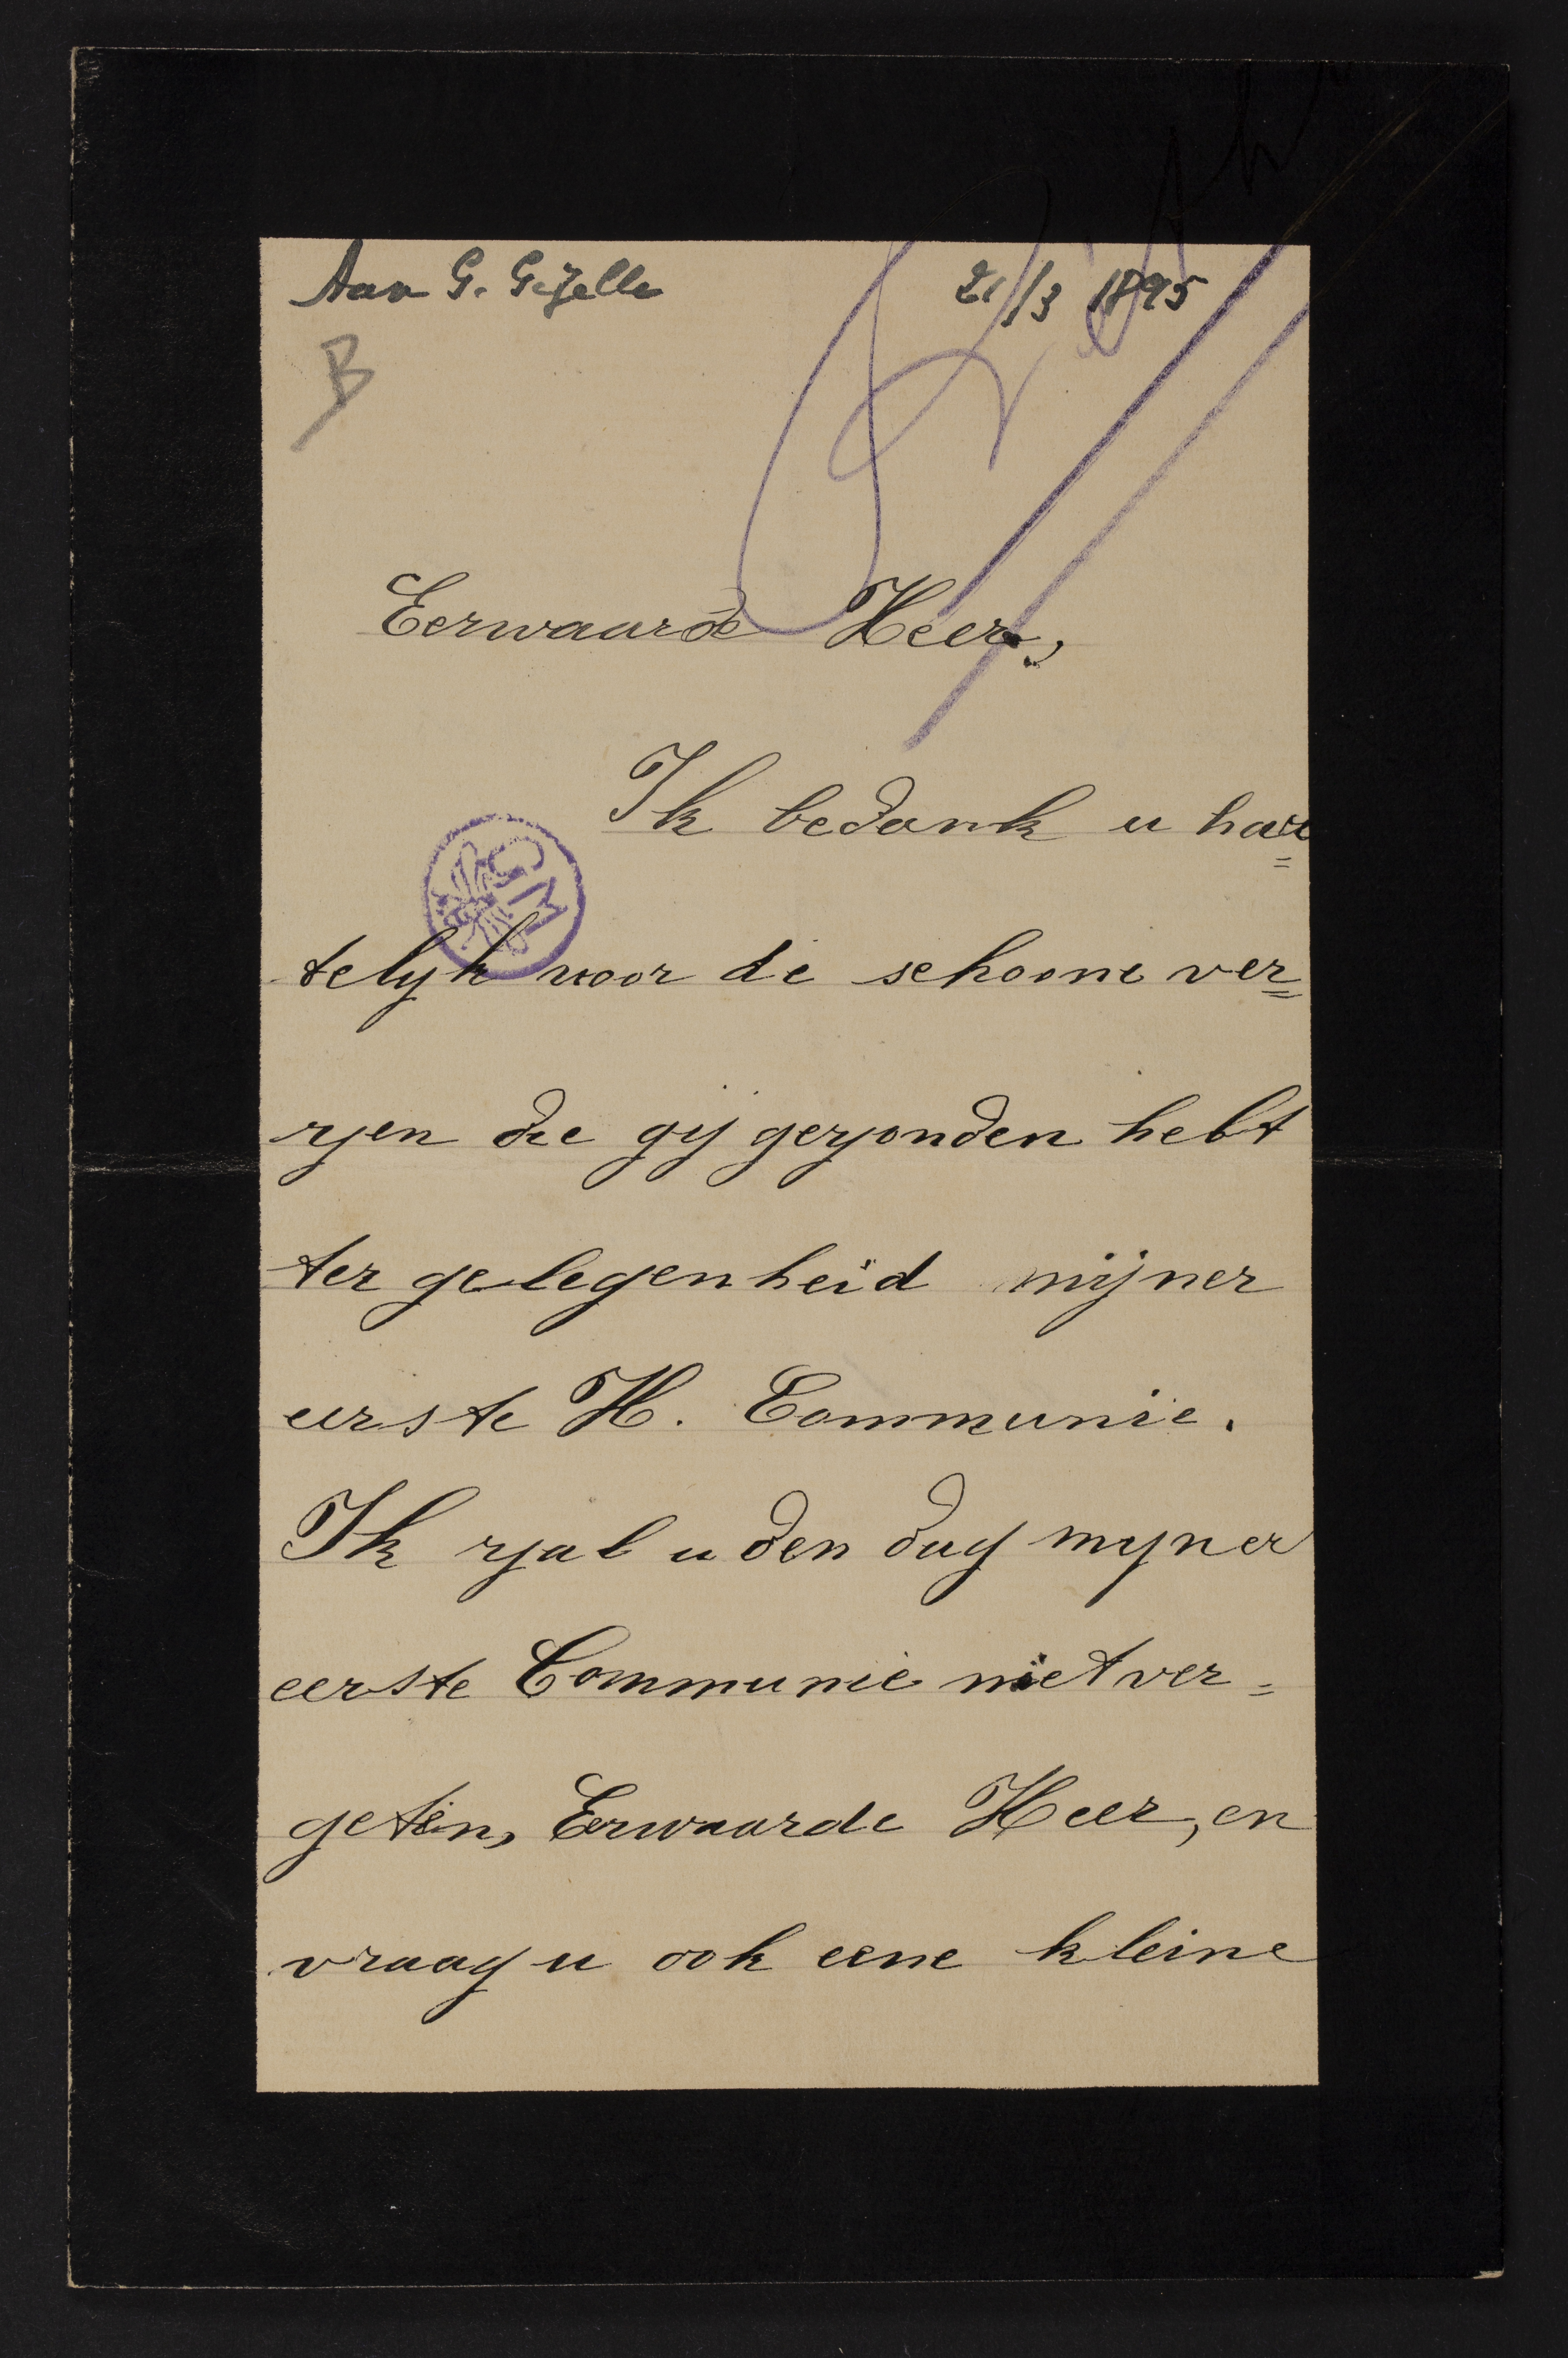 Aan G. Gezelle 21/3 1895
B
Eerwaarde Heer,
Ik bedank u har=
GM
telyk voor de schoone ver=
zen die gij gezonden hebt
ter gelegenheid mijner
eerste H. Communie.
Ik zal u den dag myner
eerste Communie niet ver=
geten, Eerwaarde Heer, en
vraag u ook eene kleine